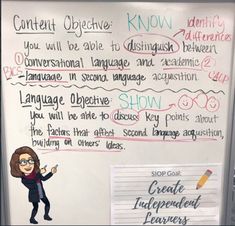 Content Objective: KNOW
identify differences
You will be able to distinguish between
① conversational language and academic ②
BICS language in second language acquisition. CALP
Language Objective: SHOW
You will be able to discuss key points about
the factors that affect second language acquisition,
building on others' ideas.
SIOP Goal:
Create
Independent
Learners